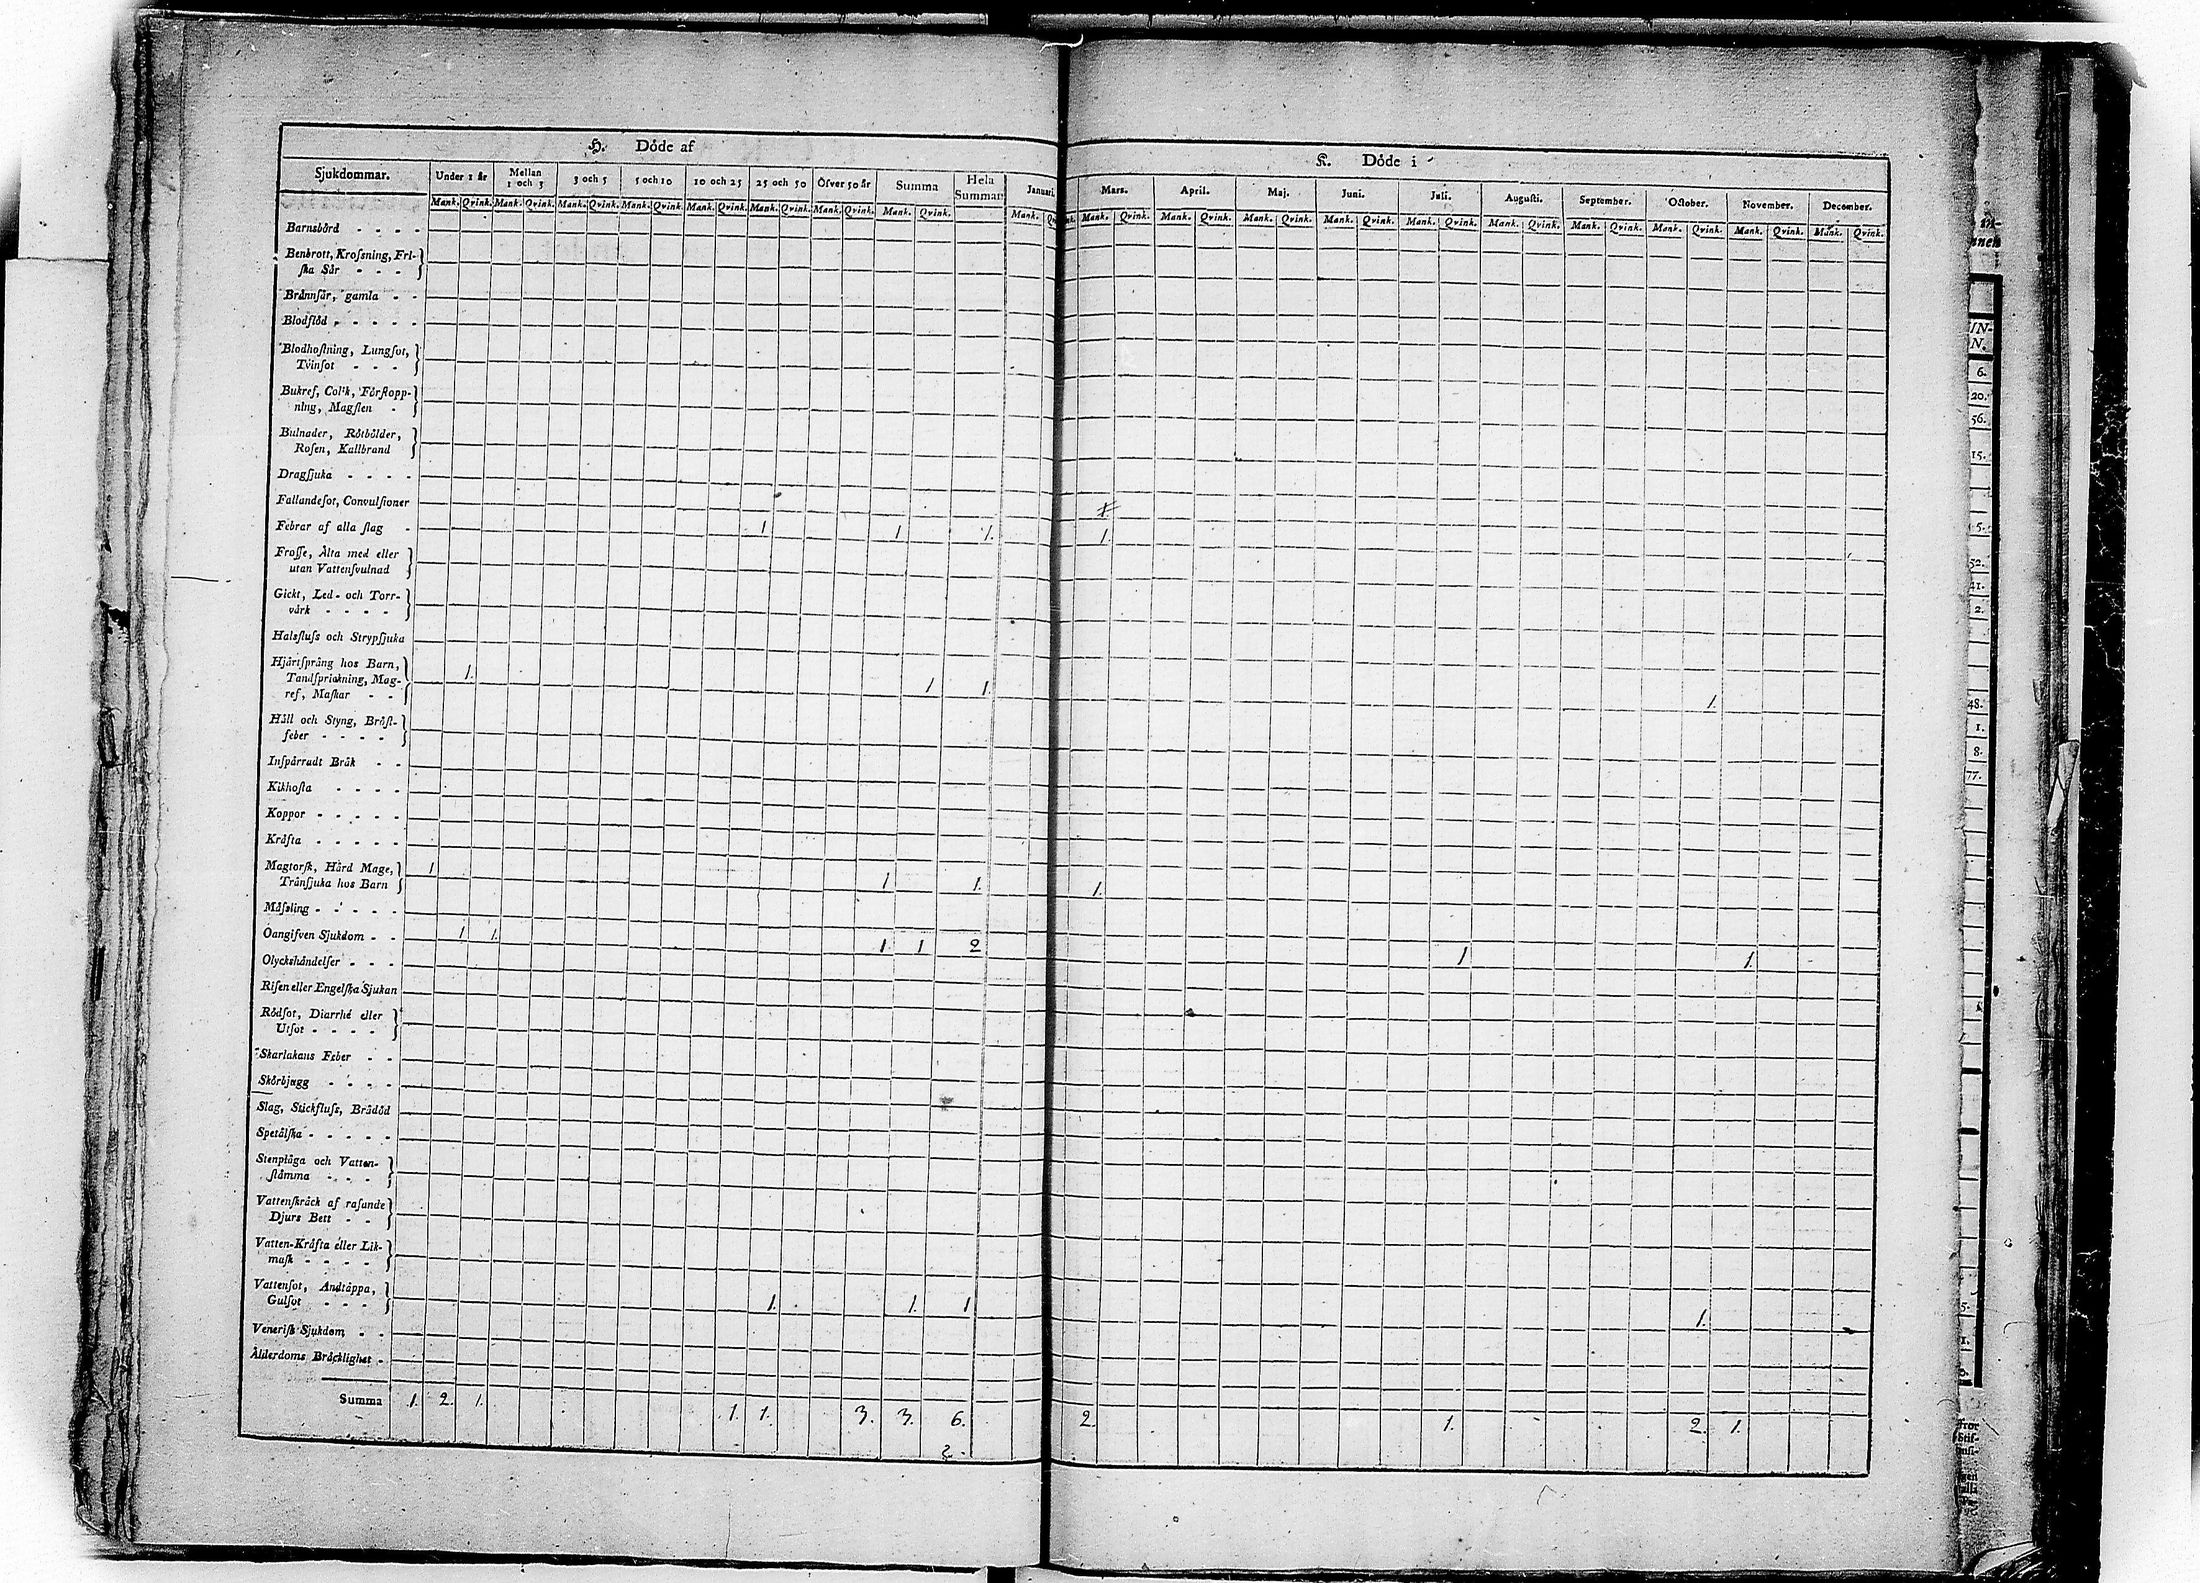 H. Döde af
K. Döde i
Sjukdommar. Under 1 år Mellan 1 och 3 3 och 5 5 och 10 10 och 25 25 och 50 Öfver 50 år Summa Hela Summan Januari. Mars. April. Maj. Juni. Juli. Augusti. September. October. November. December.
Mank. Qvink. Mank. Qvink. Mank. Qvink. Mank. Qvink. Mank. Qvink. Mank. Qvink. Mank. Qvink. Mank. Qvink. Mank. Mank. Qvink. Mank. Qvink. Mank. Qvink. Mank. Qvink. Mank. Qvink. Mank. Qvink. Mank. Qvink. Mank. Qvink. Mank. Qvink. Mank. Qvink.
Barnsbörd
Benbrott, Kroſsning, Fri-
ſka Sår
Brännſår, gamla
Blodflöd
Blodhoſtning, Lungſot,
Tvinſot
Bukref, Colik, Förſtopp-
ning, Magſten
Bulnader, Rötbölder,
Roſen, Kallbrand
Dragſjuka
Fallandeſot, Convulſioner
Febrar af alla ſlag 1 1 1. 1.
Froſſe, Älta med eller
utan Vattenſvulnad
Gickt, Led- och Torr-
värk
Halsfluſs och Strypſjuka
Hjärtſprång hos Barn,
Tandſprickning, Mag- 1.
ref, Maſkar 1 1. 1.
Håll och Styng, Bröſt-
feber
Inſpärradt Bråk
Kikhoſta
Koppor
Kräfta
Magtorſk, Hård Mage, 1
Tränſjuka hos Barn 1 1. 1.
Mäſsling
Oangifven Sjukdom 1 1. 1 1 2 1 1.
Olyckshändelſer
Riſen eller Engelſka Sjukan
Rödſot, Diarrhé eller
Utſot
Skarlakans Feber
Skörbjugg
Slag, Stickfluſs, Brådöd
Spetälſka
Stenplåga och Vatten-
ſtämma
Vattenſkräck af raſande
Djurs Bett
Vatten-Kräfta eller Lik-
maſk
Vattenſot, Andtäppa,
Gulſot 1. 1. 1 1.
Veneriſk Sjukdom
Ålderdoms Bräcklighet
Summa 1. 2. 1. 1. 1. 3. 3. 6. 2. 1. 2. 1.
2.
in-
nnen
UN-
N.
6.
20.
56.
15.
5.
52.
41.
2.
48.
1.
8.
77.
5.
1.